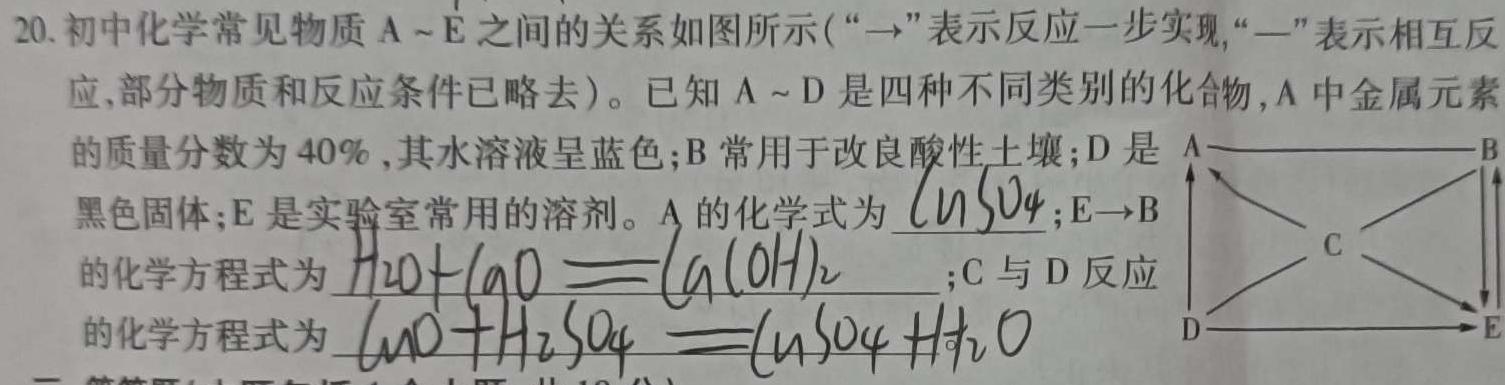 20. 初中化学常见物质 A ~ E 之间的关系如图所示(“→”表示反应一步实现,“—”表示相互反
应,部分物质和反应条件已略去)。已知 A ~ D 是四种不同类别的化合物,A 中金属元素
的质量分数为 40%,其水溶液呈蓝色;B 常用于改良酸性土壤;D 是
黑色固体;E 是实验室常用的溶剂。A 的化学式为 CuSO4;E→B
的化学方程式为 H2O+CaO=Ca(OH)2;C 与 D 反应
的化学方程式为 CuO+H2SO4=CuSO4+H2O
A B
C
D E